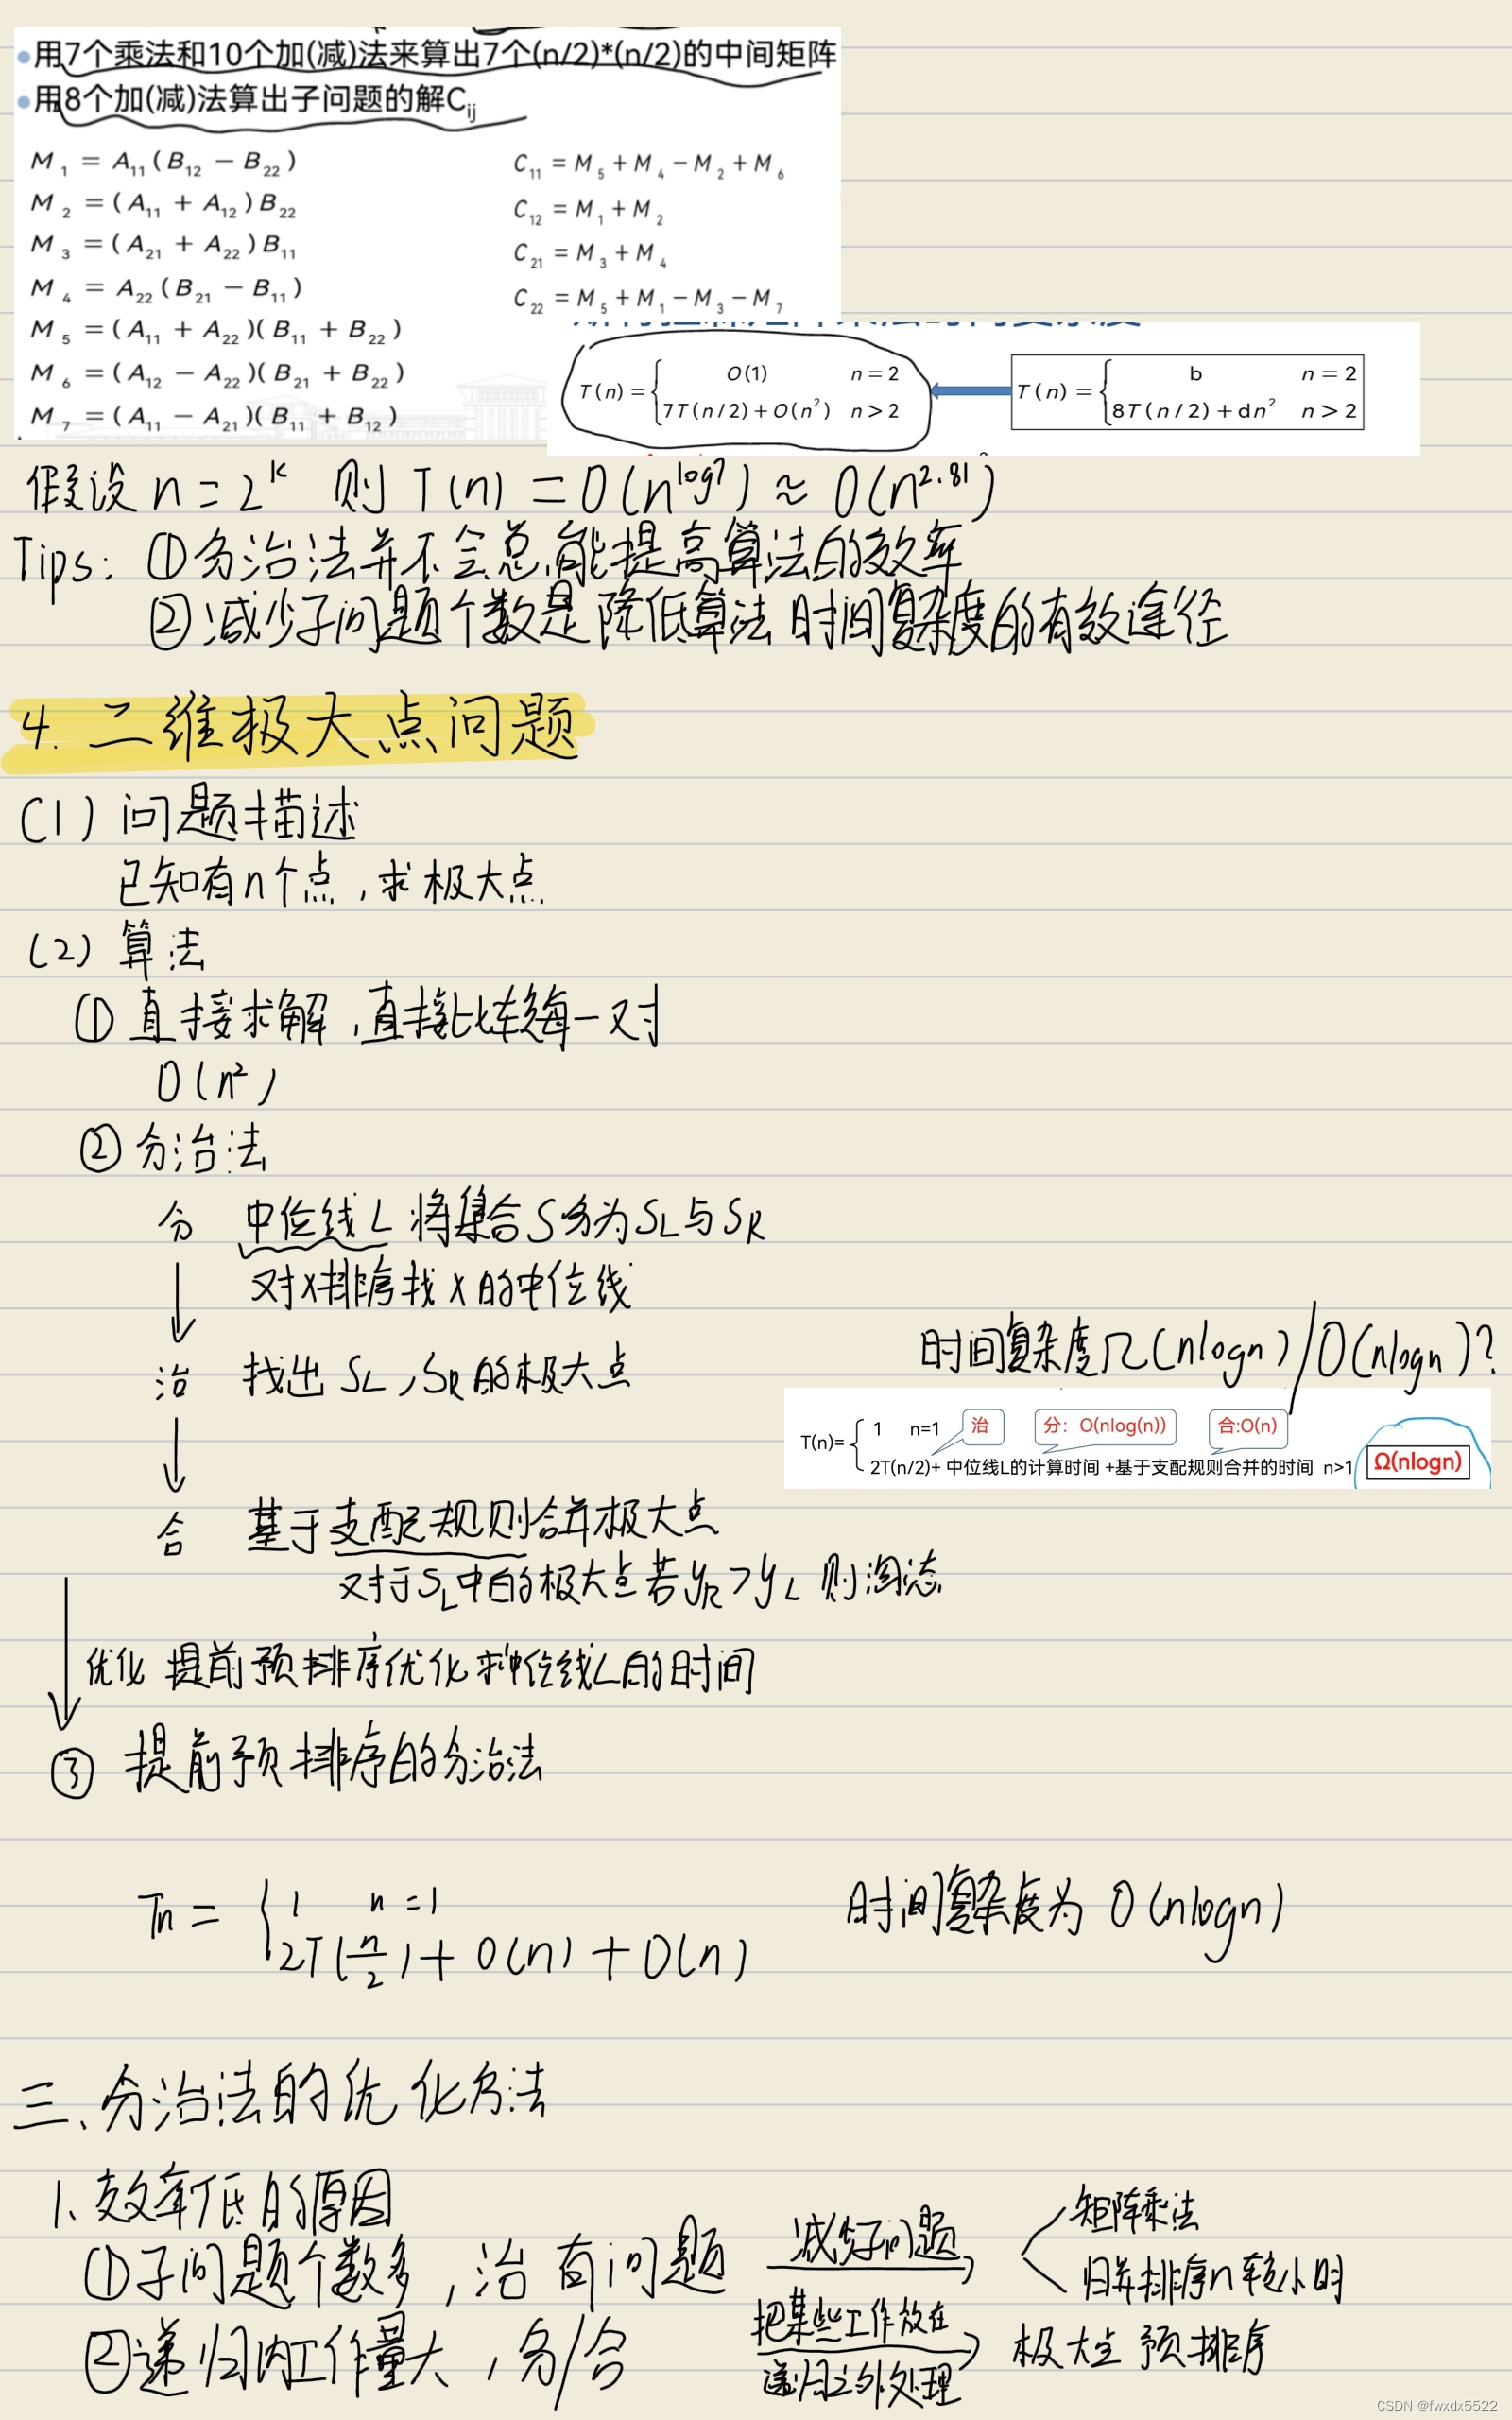 用7个乘法和10个加(减)法来算出7个(n/2)*(n/2)的中间矩阵
用8个加(减)法算出子问题的解Cij
M1 = A11(B12 − B22)
M2 = (A11 + A12)B22
M3 = (A21 + A22)B11
M4 = A22(B21 − B11)
M5 = (A11 + A22)(B11 + B22)
M6 = (A12 − A22)(B21 + B22)
M7 = (A11 − A21)(B11 + B12)
C11 = M5 + M4 − M2 + M6
C12 = M1 + M2
C21 = M3 + M4
C22 = M5 + M1 − M3 − M7
T(n) = { O(1) n = 2
7T(n/2) + O(n²) n > 2
T(n) = { b n = 2
8T(n/2) + dn² n > 2
假设 n = 2^k 则 T(n) = O(n^log7) ≈ O(n^2.81)
Tips: ①分治法并不会总能提高算法的效率
②减少子问题个数是降低算法时间复杂度的有效途径
4. 二维极大点问题
(1) 问题描述
已知有n个点,求极大点
(2) 算法
① 直接求解,直接比较每一对
O(n²)
② 分治法
分 中位线L 将集合S分为SL与SR
对x排序找x的中位线
治 找出SL,SR的极大点
时间复杂度Ω(nlogn)/O(nlogn)?
T(n)= { 1 n=1 治 分: O(nlog(n)) 合:O(n)
2T(n/2)+ 中位线L的计算时间 +基于支配规则合并的时间 n>1 Ω(nlogn)
合 基于支配规则合并极大点
对于SL中的极大点若yR>yL则淘汰
优化 提前预排序优化求中位线L的时间
③ 提前预排序的分治法
Tn = { 1 n=1
2T(n/2)+O(n)+O(n)
时间复杂度为 O(nlogn)
三、分治法的优化方法
1、效率低的原因
①子问题个数多,治有问题 减少子问题 矩阵乘法
归并排序n较小时
②递归内工作量大,分/合 把某些工作放在
递归之外处理 极大点 预排序
CSDN @fwxdx5522